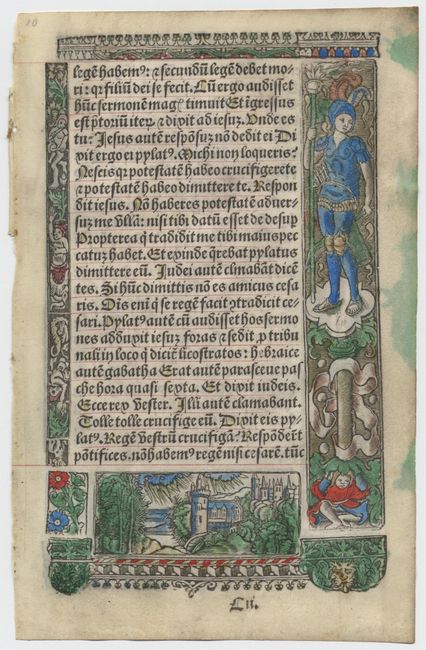 10
legẽ habemꝰ: ⁊ secundũ legẽ debet mo-
ri: qꝛ filiũ dei se fecit. Cũ ergo audisset
hũc sermonẽ magꝭ timuit Et ĩgressus
est ꝑtoriũ iteꝝ ⁊ dixit ad iesuz. Unde es
tu: Jesus autẽ respõsuz nõ dedit ei Di
xit ergo ei pylatꝰ. Michi non loqueris?
Nescis qꝛ potestatẽ habeo crucifigere te
⁊ potestatẽ habeo dimittere te. Respon
dit iesus. Nõ haberes potestatẽ aduer-
suz me vllã: nisi tibi datũ esset de desuꝑ
Propterea q̃ tradidit me tibi maius pec
catuz habet. Et exinde q̃rebat pylatus
dimittere eũ. Judei autẽ clmabãt dicẽ
tes. Si hũc dimittis nõ es amicus cesa
ris. Oĩs eni q̃ se regẽ facit ꝯtradicit ce-
sari. Pylatꝰ autẽ cũ audisset hos sermo
nes adduxit iesuz foras ⁊ sedit ꝓ tribu
nali in loco q̃ dicit̃ licostratos: hebraice
autẽ gabatha Erat autẽ parasceue pas
che hora quasi sexta. Et dixit iudeis.
Ecce rex vester. Jlli autẽ clamabant.
Tolle tolle crucifige eũ. Dixit eis py-
latꝰ. Regẽ vestrũ crucifigã? Respõdeẽt
põtifices. nõ habemꝰ regẽ nisi cesarẽ. tũc
C.ii.